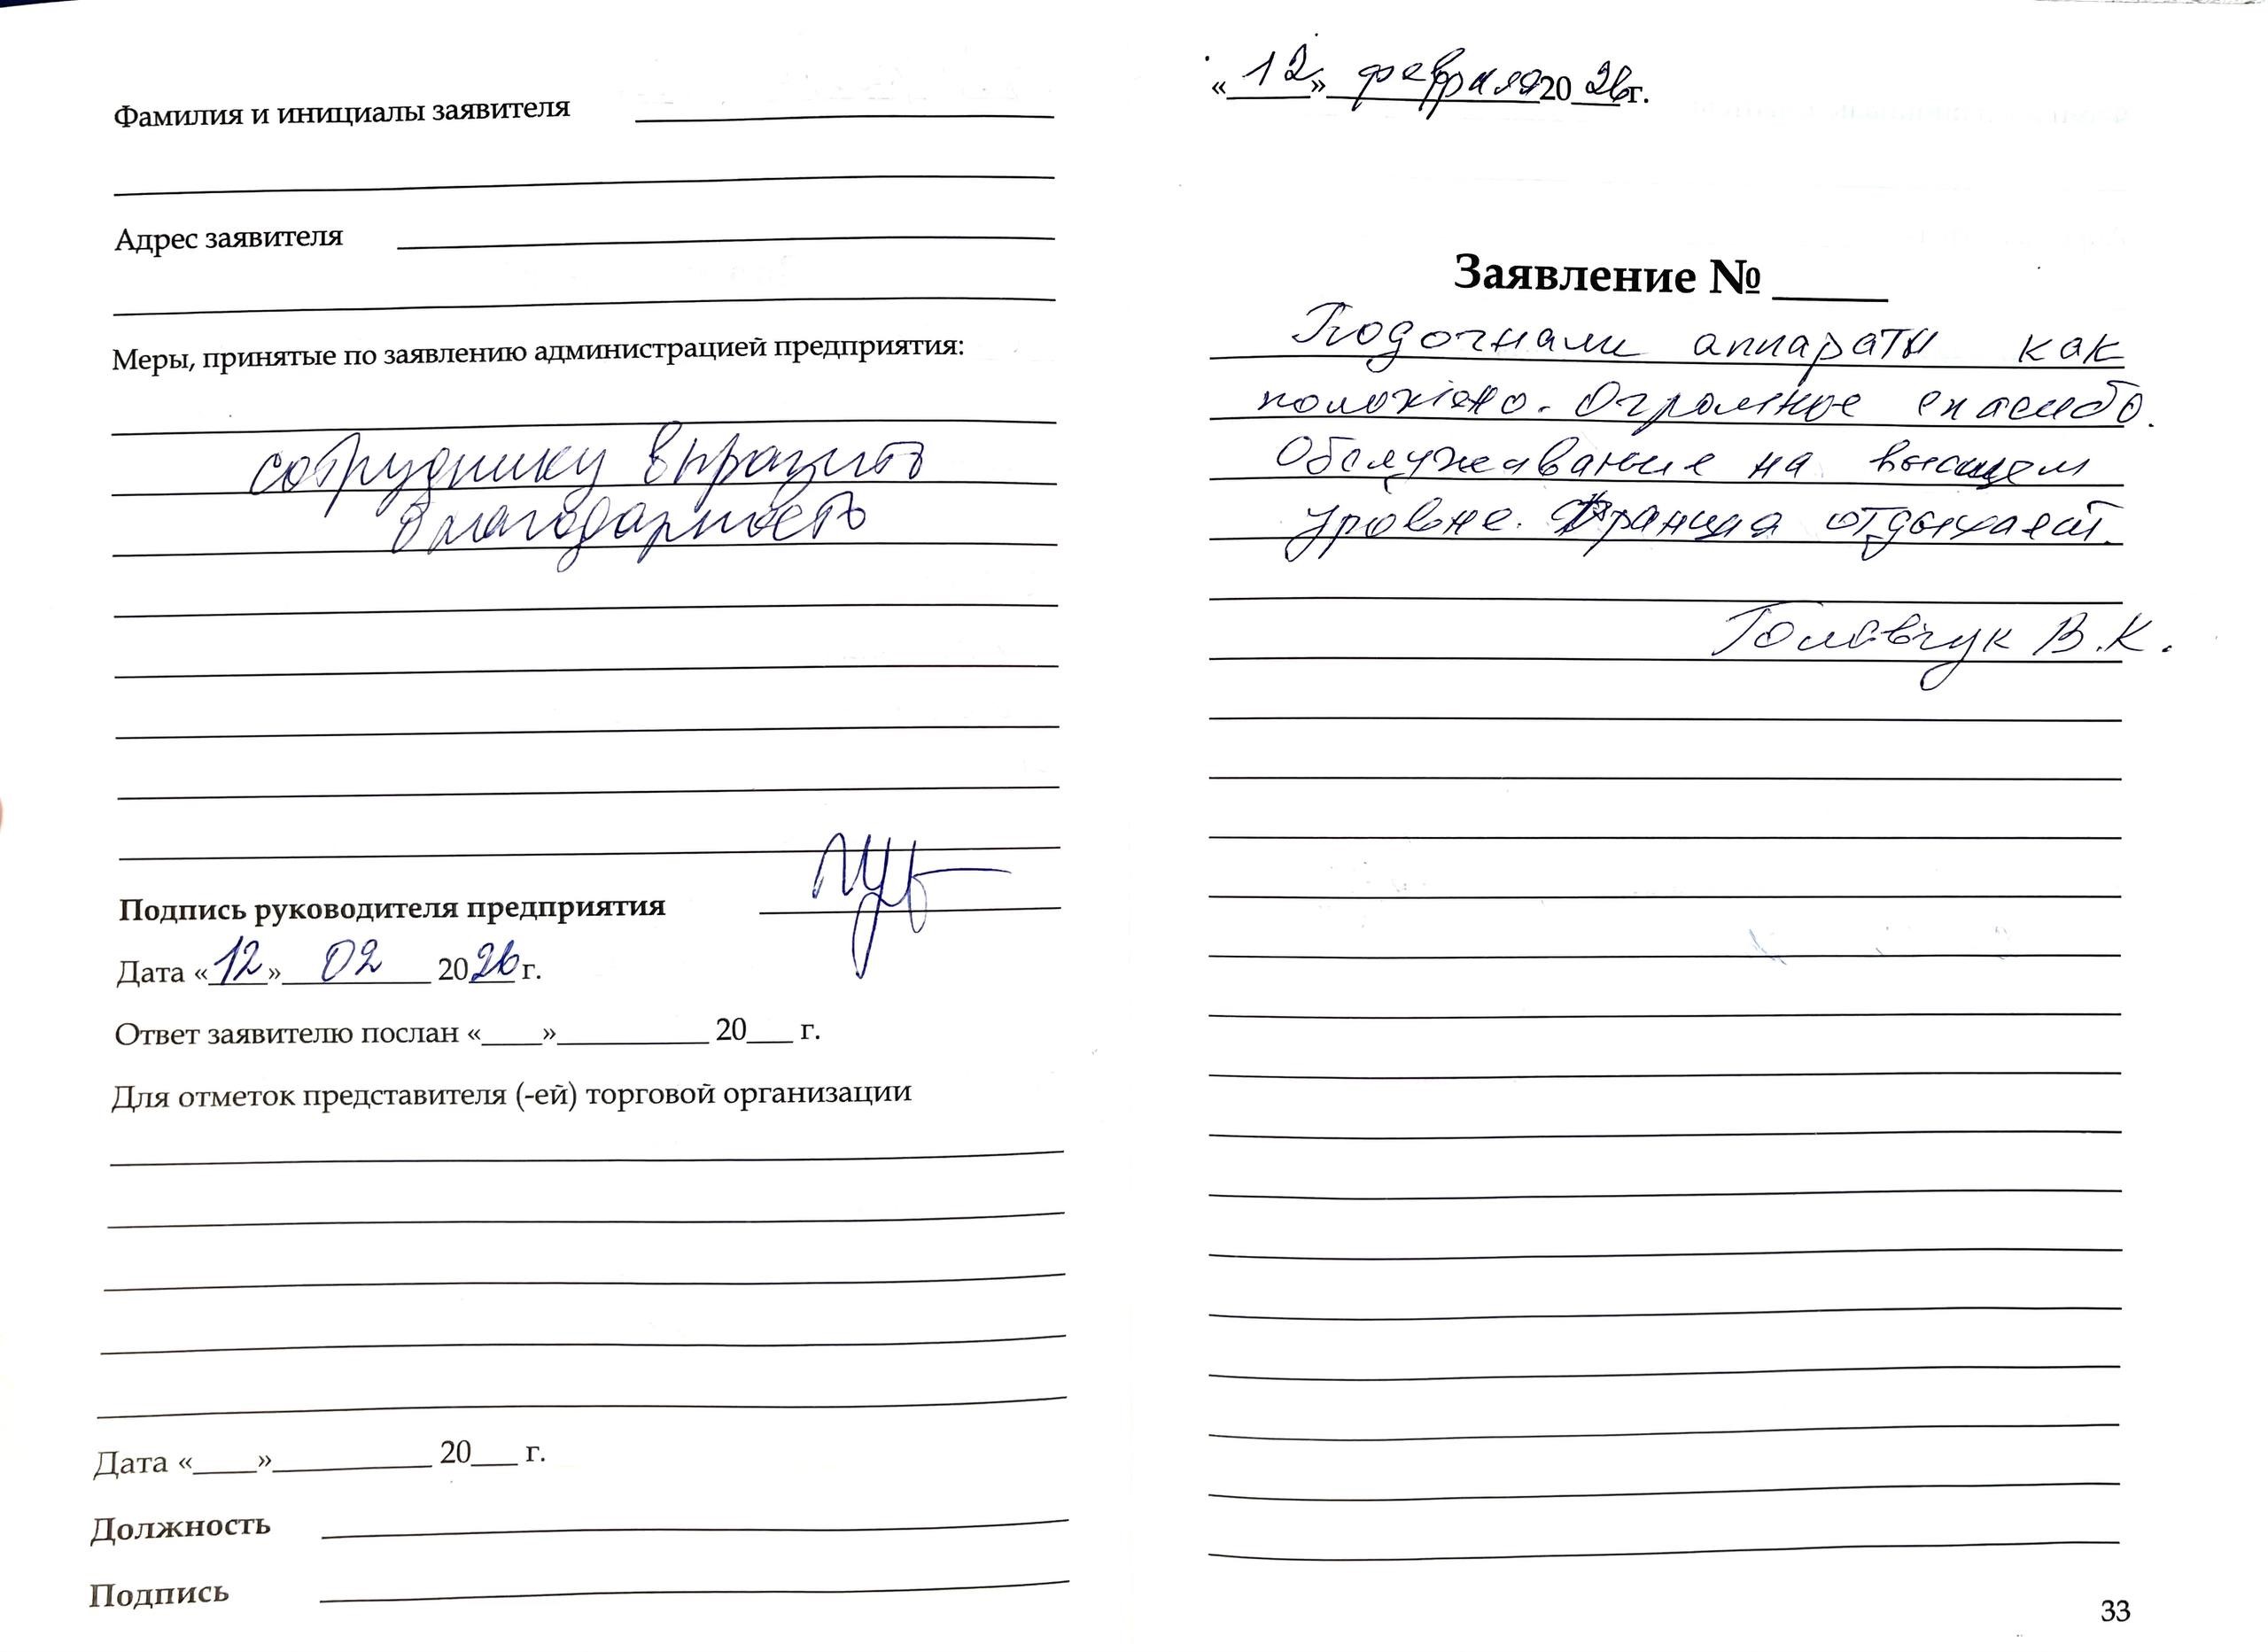 Фамилия и инициалы заявителя
Адрес заявителя
Меры, принятые по заявлению администрацией предприятия:
сотруднику выразить
благодарность
Подпись руководителя предприятия
Дата «12» 02 2026 г.
Ответ заявителю послан «____»__________ 20___ г.
Для отметок представителя (-ей) торговой организации
Дата «____»__________ 20___ г.
Должность
Подпись
«12» февраля 2026г.
Заявление № _____
аппараты как
положено. Огромное спасибо.
Обслуживание на высшем
уровне. Франция отдыхает.
Головчук В.К.
33